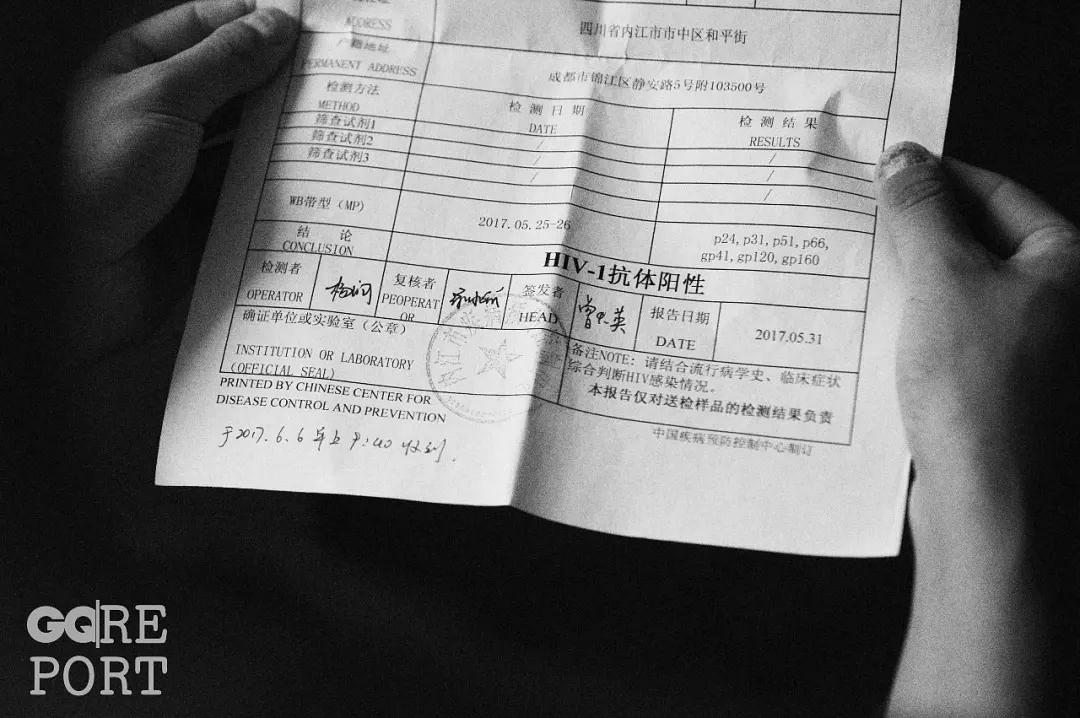 ADDRESS
四川省内江市市中区和平街
户籍地址
PERMANENT ADDRESS
成都市锦江区静安路5号附103500号
检测方法
METHOD
检测日期
DATE
检测结果
RESULTS
筛查试剂1
/
/
筛查试剂2
/
筛查试剂3
/
/
WB带型（MP）
2017.05.25-26
p24,p31,p51,p66,
gp41,gp120,gp160
结 论
CONCLUSION
HIV-1抗体阳性
检测者
OPERATOR
复核者
PEOPERAT
OR
签发者
HEAD
报告日期
DATE
2017.05.31
确证单位或实验室（公章）
INSTITUTION OR LABORATORY
(OFFICIAL SEAL)
备注NOTE：请结合流行病学史、临床症状
综合判断HIV感染情况。
本报告仅对送检样品的检测结果负责
PRINTED BY CHINESE CENTER FOR
DISEASE CONTROL AND PREVENTION
中国疾病预防控制中心制订
于2017.6.6
收到.
GQ RE
PORT